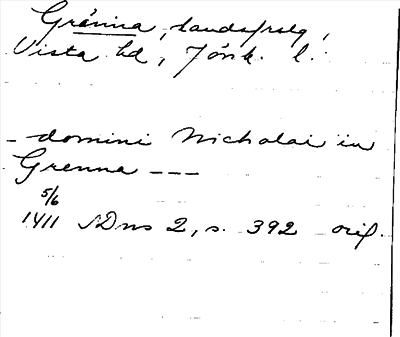 Gränna, landsfrslg,
Vista hd, Jönk. l.
- domini Nicholai in
Grenna ---
5/6
1411 SDns 2, s. 392 orig.